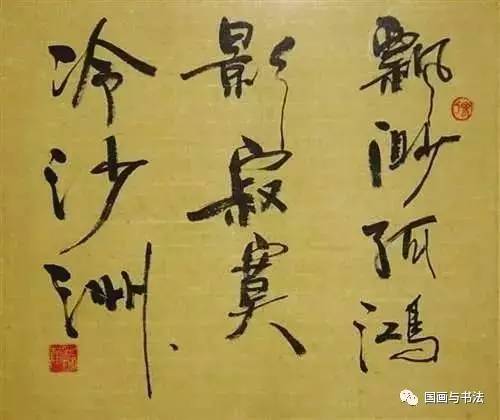 飄渺孤鴻
影寂寞
冷沙洲
国画与书法